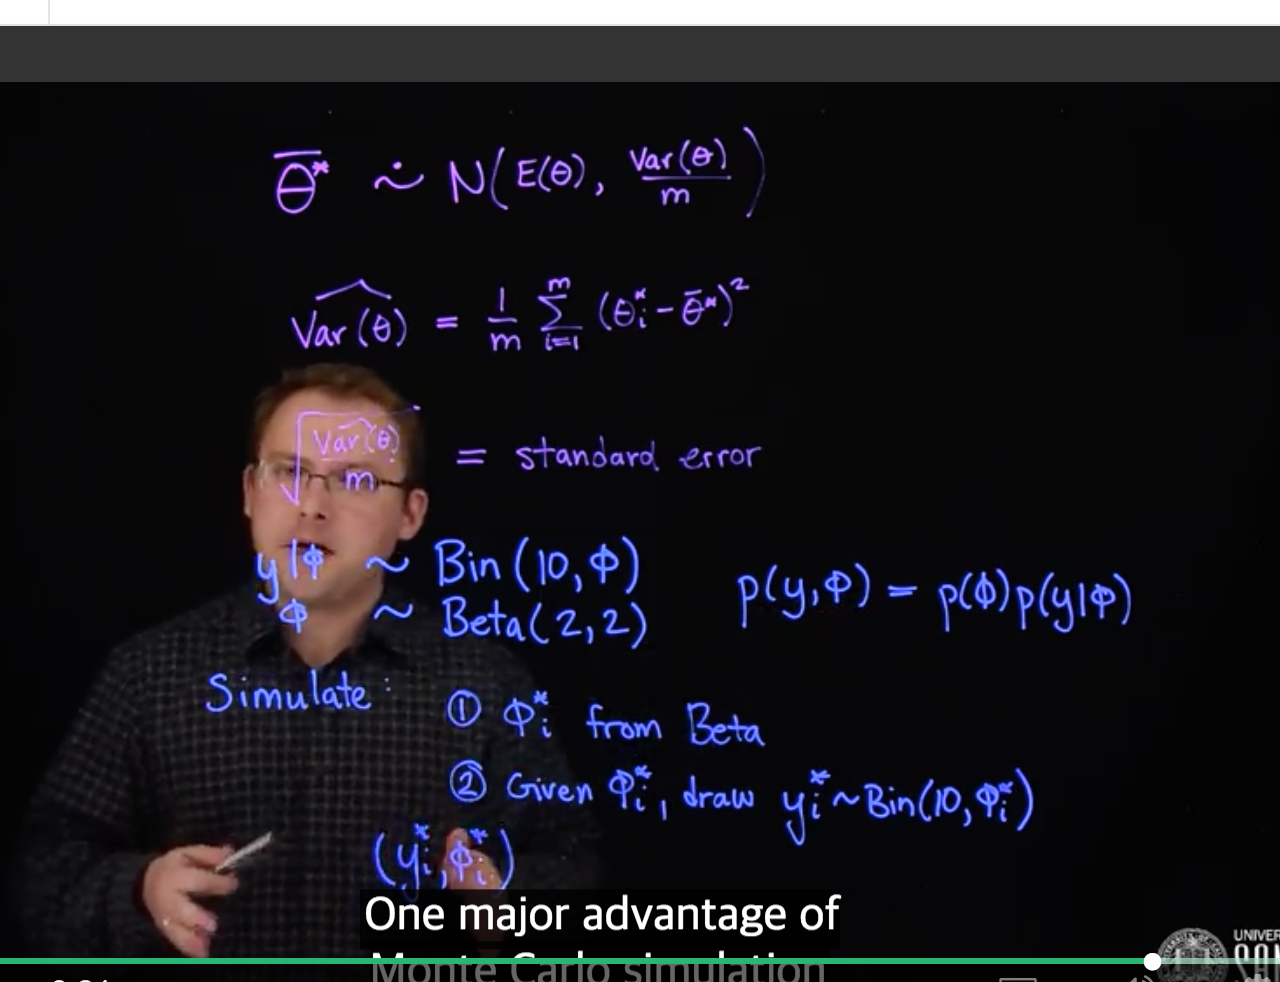 θ̄* ∼̇ N(E(θ), Var(θ)/m)
\widehat{Var(θ)} = 1/m ∑_{i=1}^{m} (θ*_i − θ̄*)²
√(\widehat{Var(θ)}/m) = standard error
y|φ ~ Bin(10, φ)
φ ~ Beta(2,2)
p(y,φ) = p(φ)p(y|φ)
Simulate:
① φ*_i from Beta
② Given φ*_i, draw y*_i ~ Bin(10, φ*_i)
(y*_i, φ*_i)
One major advantage of
Monte Carlo simulation